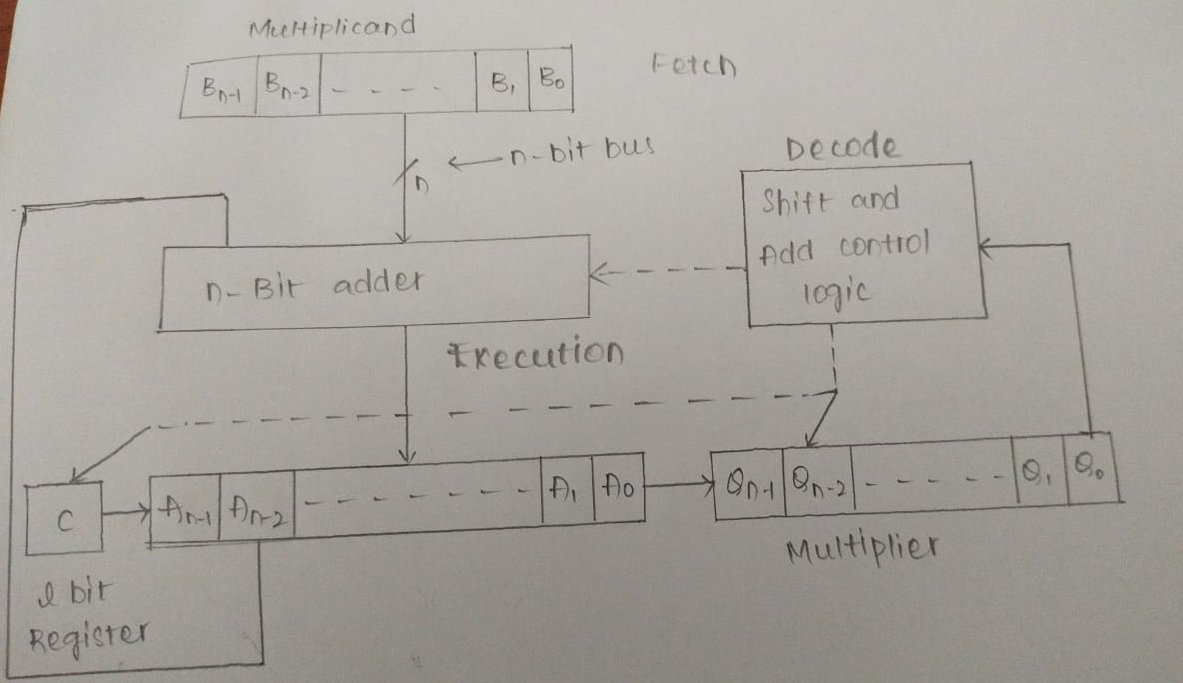 Multiplicand
Fetch
Bn-1 Bn-2 - - - - B1 B0
n-bit bus
n
Decode
Shift and
Add control
logic
n-Bit adder
Execution
C
An-1 An-2 - - - - - - - A1 A0
Qn-1 Qn-2 - - - - - Q1 Q0
Multiplier
1 bit
Register